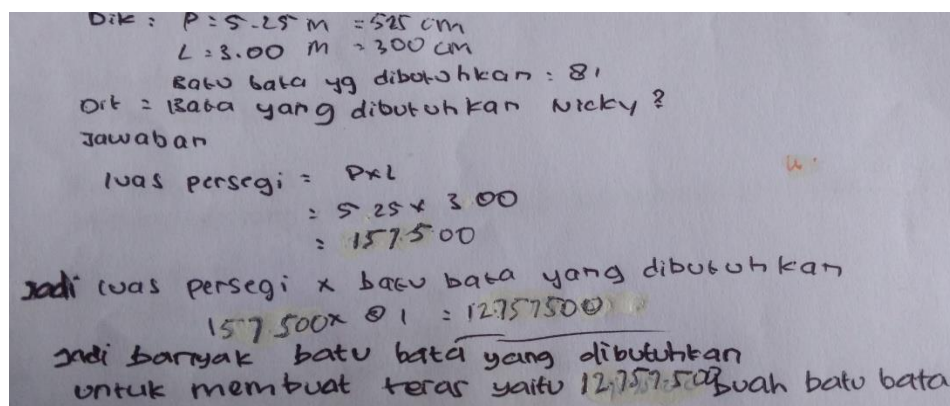 Dik : P = 5.25 m = 525 cm
L = 3.00 m = 300 cm
Batu bata yg dibutuhkan : 81
Dit = Bata yang dibutuhkan Nicky ?
Jawaban
luas persegi = P x L
= 5 25 x 3 00
= 157.500
Jadi luas persegi x batu bata yang dibutuhkan
157.500 x 81 = 12.757500
Jadi banyak batu bata yang dibutuhkan
untuk membuat teras yaitu 12.757.500 buah batu bata